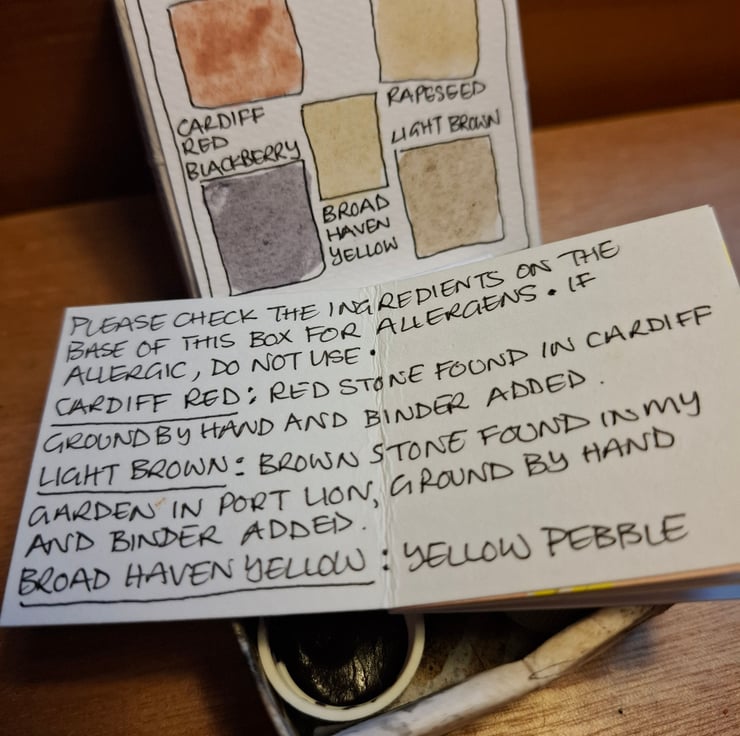 CARDIFF
RED
RAPESEED
BLACKBERRY
LIGHT BROWN
BROAD
HAVEN
YELLOW
PLEASE CHECK THE INGREDIENTS ON THE
BASE OF THIS BOX FOR ALLERGENS. IF
ALLERGIC, DO NOT USE.
CARDIFF RED: RED STONE FOUND IN CARDIFF
GROUND BY HAND AND BINDER ADDED.
LIGHT BROWN: BROWN STONE FOUND IN MY
GARDEN IN PORT LION, GROUND BY HAND
AND BINDER ADDED.
BROAD HAVEN YELLOW: YELLOW PEBBLE